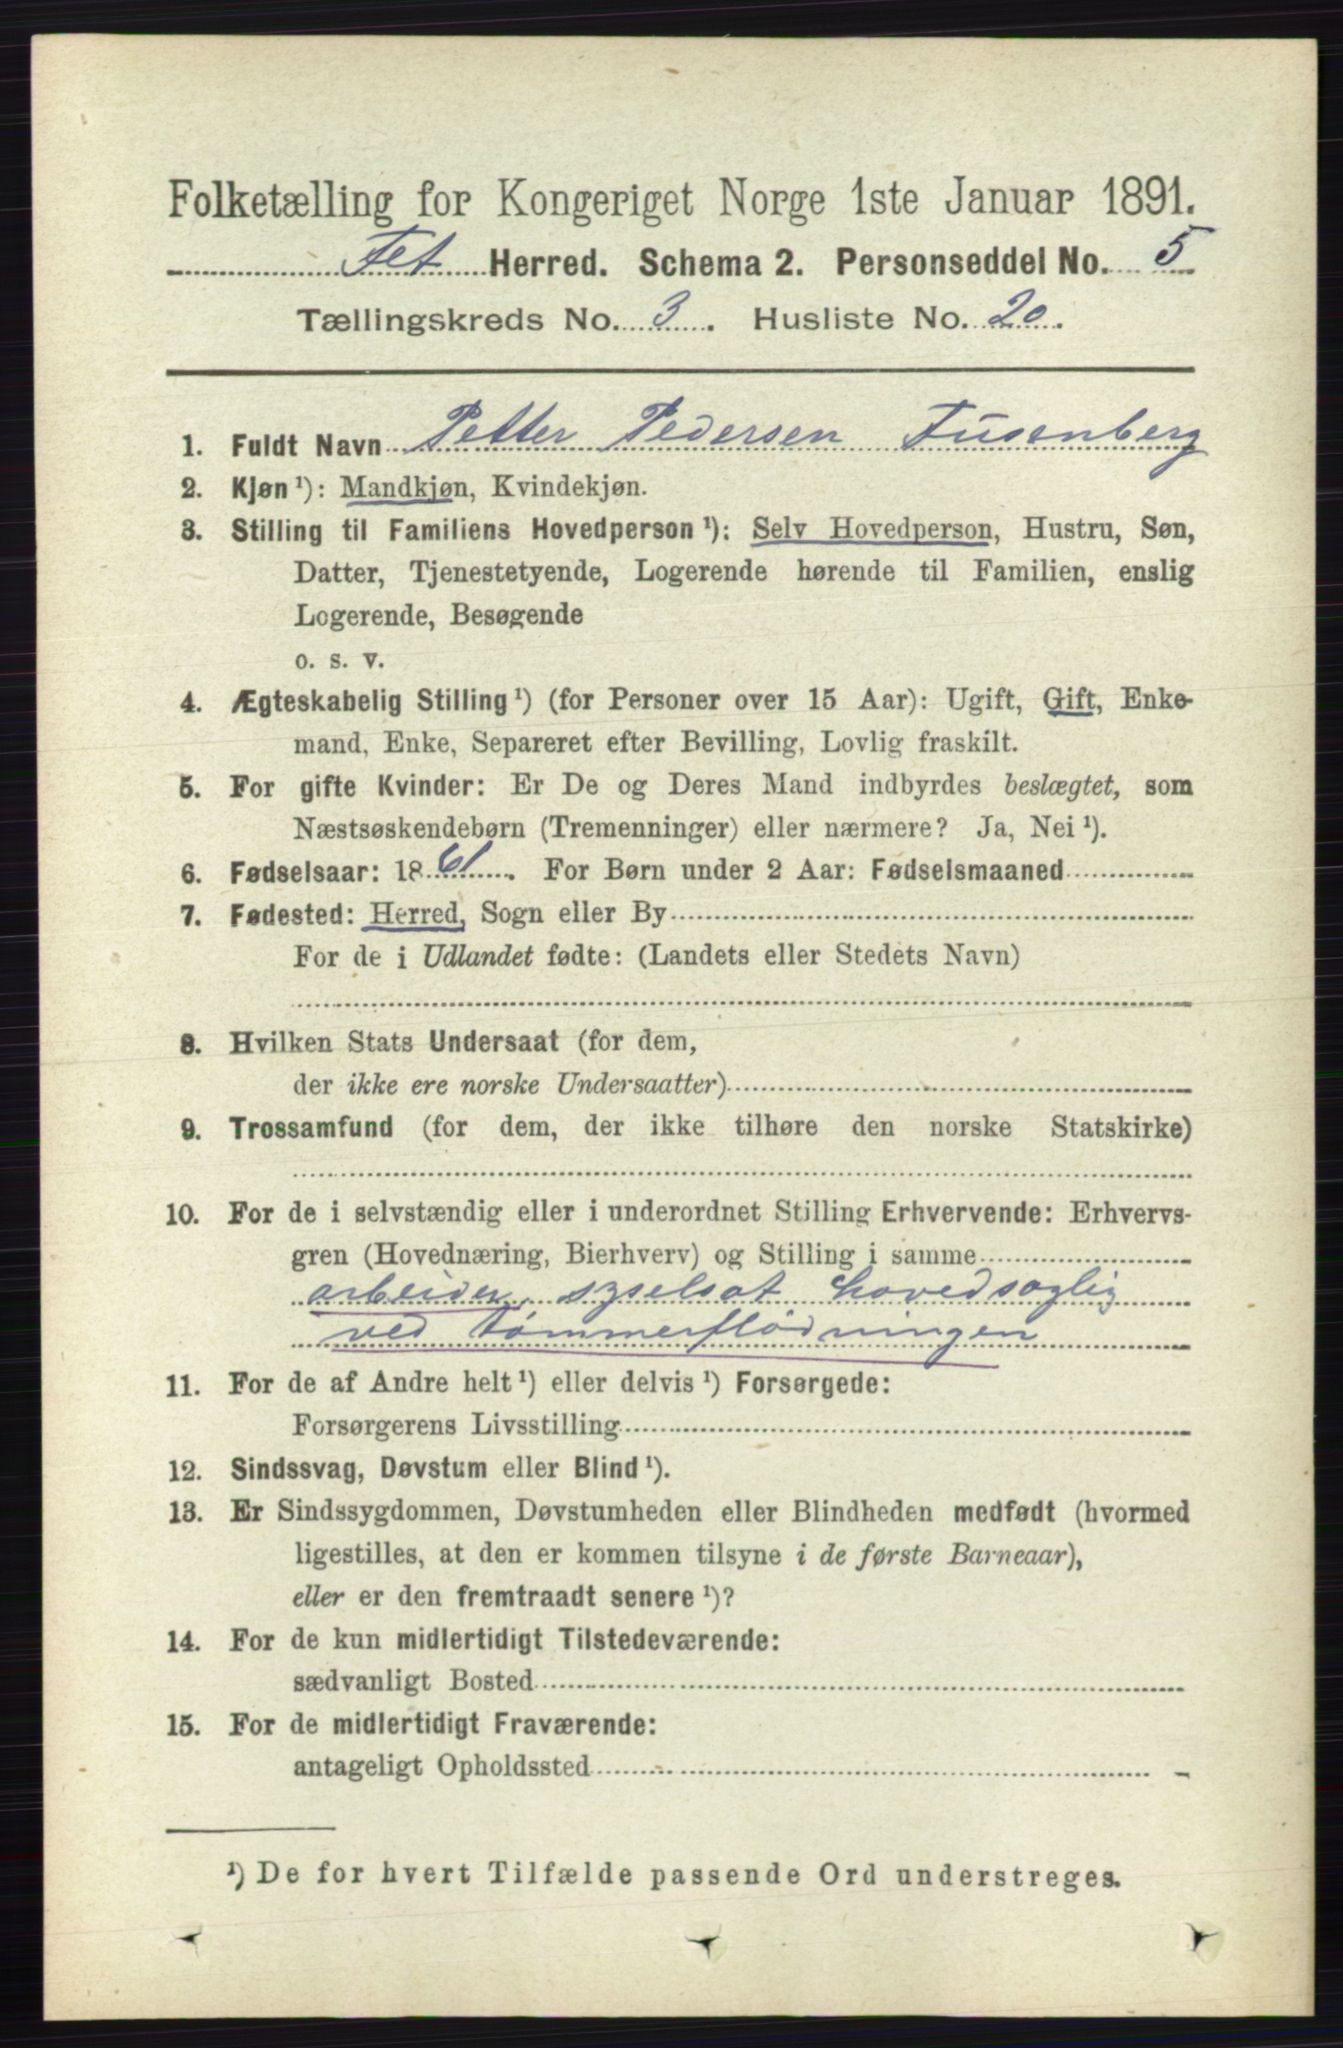 Folketælling for Kongeriget Norge 1ste Januar 1891.
Fet Herred. Schema 2. Personseddel No. 5
Tællingskreds No. 3. Husliste No. 20.
1. Fuldt Navn Petter Pedersen Fusenberg
2. Kjøn¹): Mandkjøn, Kvindekjøn.
3. Stilling til Familiens Hovedperson¹): Selv Hovedperson, Hustru, Søn,
Datter, Tjenestetyende, Logerende hørende til Familien, enslig
Logerende, Besøgende
o. s. v.
4. Ægteskabelig Stilling¹) (for Personer over 15 Aar): Ugift, Gift, Enke-
mand, Enke, Separeret efter Bevilling, Lovlig fraskilt.
5. For gifte Kvinder: Er De og Deres Mand indbyrdes beslægtet, som
Næstsøskendebørn (Tremenninger) eller nærmere? Ja, Nei¹).
6. Fødselsaar: 1861. For Børn under 2 Aar: Fødselsmaaned
7. Fødested: Herred, Sogn eller By
For de i Udlandet fødte: (Landets eller Stedets Navn)
8. Hvilken Stats Undersaat (for dem,
der ikke ere norske Undersaatter)
9. Trossamfund (for dem, der ikke tilhøre den norske Statskirke)
10. For de i selvstændig eller i underordnet Stilling Erhvervende: Erhvervs-
gren (Hovednæring, Bierhverv) og Stilling i samme
arbeider, syselsat hovedsaglig
ved tømmerflødningen
11. For de af Andre helt¹) eller delvis¹) Forsørgede:
Forsørgerens Livsstilling
12. Sindssvag, Døvstum eller Blind¹).
13. Er Sindssygdommen, Døvstumheden eller Blindheden medfødt (hvormed
ligestilles, at den er kommen tilsyne i de første Barneaar),
eller er den fremtraadt senere¹)?
14. For de kun midlertidigt Tilstedeværende:
sædvanligt Bosted
15. For de midlertidigt Fraværende:
antageligt Opholdssted
¹) De for hvert Tilfælde passende Ord understreges.